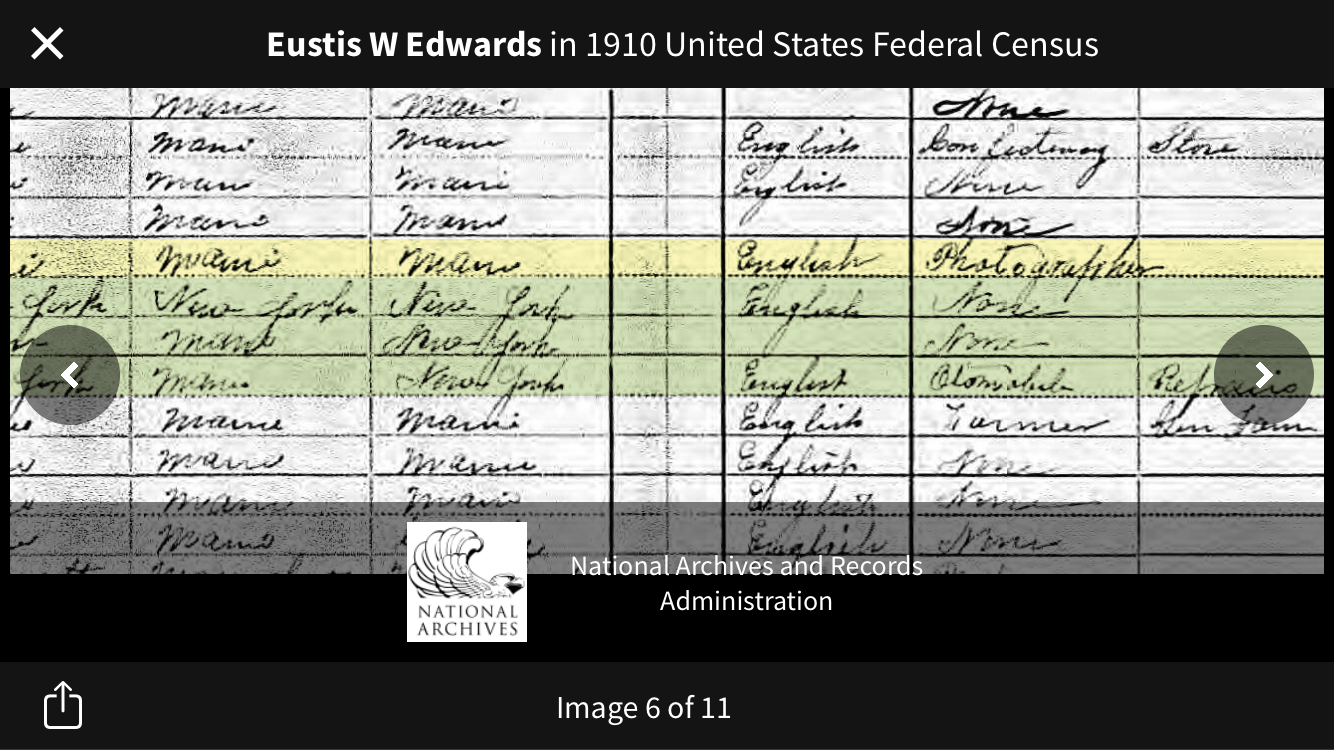 Eustis W Edwards in 1910 United States Federal Census
Maine Maine None
Maine Maine English Confectionary Store
Maine Maine English None
Maine Maine None
Maine Maine English Photographer
York New York New York English None
Maine New York None
York Maine New York English Otomobile Repairs
Maine Maine English Farmer Gen Farm
Maine Maine English None
Maine Maine English None
Maine English None
National Archives and Records
Administration
NATIONAL
ARCHIVES
Image 6 of 11